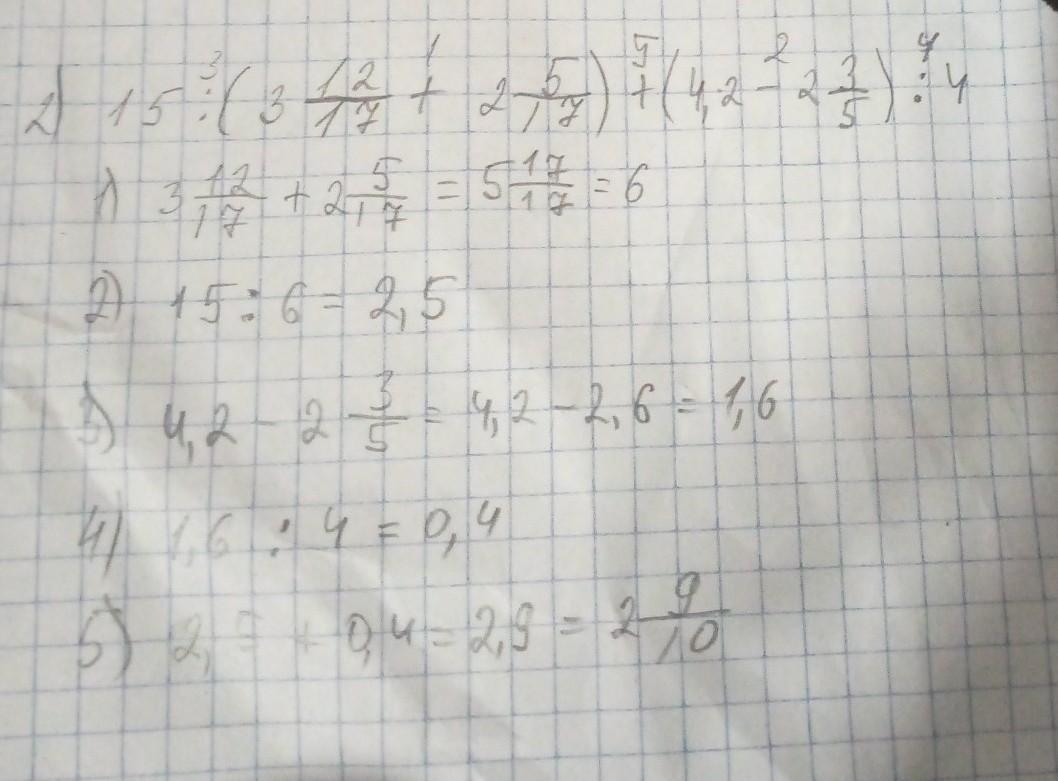 2) 15 : (3 12/17 + 2 5/17) + (4,2 - 2 3/5) : 4
1) 3 12/17 + 2 5/17 = 5 17/17 = 6
2) 15 : 6 = 2,5
3) 4,2 - 2 3/5 = 4,2 - 2,6 = 1,6
4) 1,6 : 4 = 0,4
5) 2,5 + 0,4 = 2,9 = 2 9/10